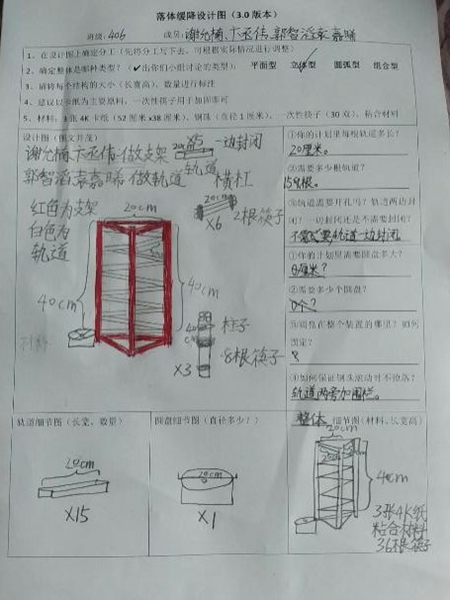 落体缓降设计图（3.0版本）
班级：406 成员：谢允楠、卞丞伟、郭智滔、袁嘉晞
1、在设计图上确定分工（先将分工写下去，可根据实际情况进行调整）
2、确定整体是哪种类型？（✓出你们小组讨论的类型） 平面型 立体型 圆弧型 组合型
3、请将每个结构的大小（长宽高）、数量进行标注
4、建议以卡纸为主要原料，一次性筷子用于加固即可
5、材料：3张4K卡纸（52厘米x38厘米）、钢珠（直径1厘米）、一次性筷子（30双）、粘合材料
设计图（图文并茂）
谢允楠、卞丞伟-做支架
郭智滔袁嘉晞-做轨道
20cm
X15
一边封闭
轨道
横杠
20cm
X6
2根筷子
红色为支架
白色为
轨道
20cm
40cm
40cm
40
cm
柱子
8根筷子
X3
①你的计划里每根轨道多长？
20厘米。
②需要多少根轨道？
15根。
③轨道需要开孔吗？轨道两边封闭？一边封闭还是不需要封闭？
轨道一边封闭
①你的计划里需要圆盘多大？
0厘米？
②需要多少个圆盘？
0个？
③圆盘在整个装置的哪里？如何固定？
?
④如何保证钢珠滚动时不掉落？
轨道两旁加围栏。
轨道细节图（长宽、数量）
20cm
X15
圆盘细节图（直径多少？）
20cm
X1
整体 细节图（材料、长宽高）
20cm
40cm
3张4K纸
粘合材料
36根筷子